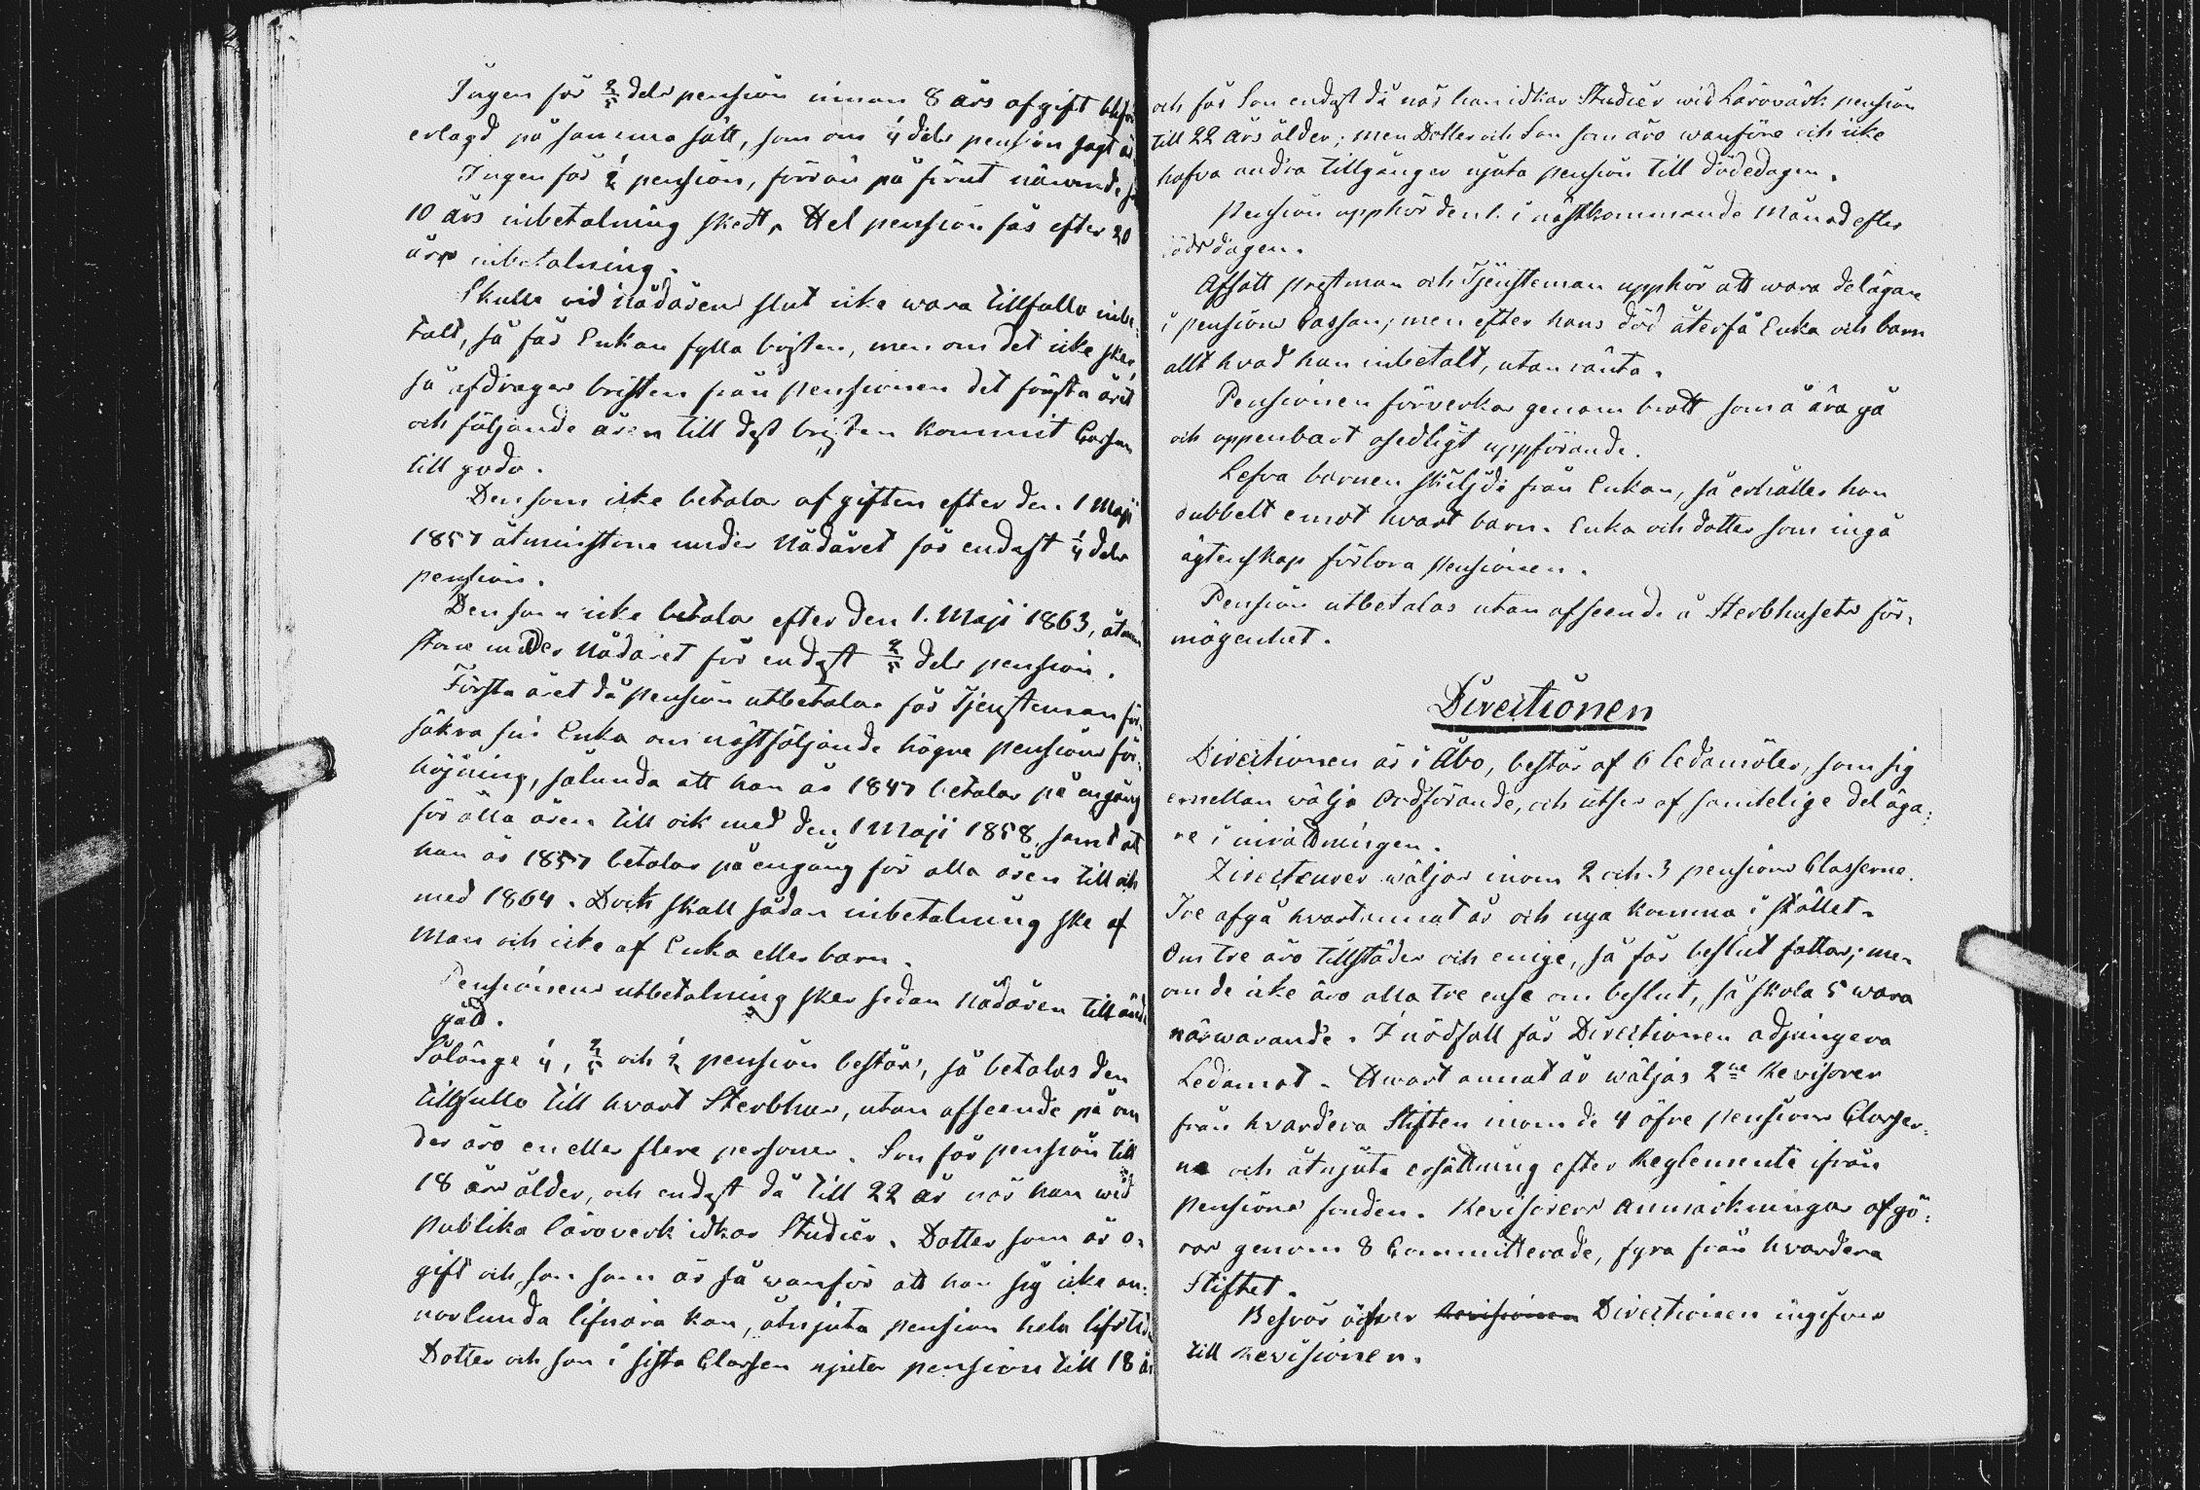 Ingen får 2/5 dels pension innan 8 års afgift blifvi
erlagd på samma sätt, som om 1/4 dels pension sagt är
Ingen får 1/2 pension, förrän på förut nämnde sä
10 års inbetalning skett. Hel pension fås efter 20
års inbetalning.
Skulle vid Nådårens slut icke wara tillfullo inbe-
talt, så får Enkan fylla bristen, men om det icke sker,
så afdrages bristen från pensionen det första året
och följande åren till dess bristen kommit Cassan
till godo.
Den som icke betalar afgiften efter den 1 Maji
1857 åtminstone under Nådåret får endast 1/4 dels
pension.
Den som icke betalar efter den 1. Maji 1863, åtmin
stone under Nådåret får endast 2/5 dels pension.
Första året då pension utbetalas får Tjensteman för-
säkra sin Enka om nästföljande högre pensions för-
höjning, sålunda att han år 1847 betalar på engång
för alla åren till och med den 1 Maji 1858, samt att
han år 1857 betalar på engång för alla åren till och
med 1864. Dock skall sådan inbetalning ske af
Man och icke af Enka eller barn.
Pensionens utbetalning sker sedan Nådåren till ända
gått.
Sålänge 1/4, 2/5 och 1/2 pension består, så betalas den
tillfullo till hvart Sterbhus, utan afseende på om
der äro en eller flere personer. Son får pension till
18 års ålder, och endast då till 22 år när han wid
publika läroverk idkar Studier. Dotter som är o-
gift och son som är så wanför att han sig icke an-
norlunda lifnära kan, åtnjuta pension hela lifstid
Dotter och son i sista Classen njuter pension till 18 år
och får Son endast då när han idkar Studier wid Läroverk pension
till 22 års ålder; men Dotter och Son som äro wanföre och icke
hafva andra tillgånger njuta pension till dödedagen.
Pension upphör den 1. i nästkommande Månad efter
dödsdagen.
Afsatt prestman och Tjensteman upphör att wara delägare
i pensions Cassan; men efter hans död återfå Enka och barn
allt hvad han inbetalt, utan ränta.
Pensionen förverkas genom brott som å ära gå
och oppenbart osedligt uppförande.
Lefva barnen skiljde från Enkan, så erhåller hon
dubbelt emot hvart barn. Enka och dotter som ingå
ägtenskap förlora Pensionen.
Pension utbetalas utan afseende å Sterbhusets för-
mögenhet.
Directionen
Directionen är i Åbo, består af 6 ledamöter, som sig
emellan wälja Ordförande, och utses af samtelige deläga-
re i inrättningen.
Directeurer wäljas inom 2 och 3 pensions Classerne.
Tre afgå hvartannat år och nya komma i stället.
Om tre äro tillstädes och enige, så får beslut fattas; men
om de icke äro alla tre ense om beslut, så skola 5 wara
närwarande. I nödfall får Directionen adjungera
Ledamot. Hwart annat år wäljas 2ne Revisorer
från hvardera Stiften inom de 4 öfre pensions Classer-
ne och åtnjuta ersättning efter Reglemente ifrån
Pensions fonden. Revisorers anmärkningar afgö-
ras genom 8 Committerade, fyra från hvardera
Stiftet.
Besvär öfver Revisionen Directionen ingifves
till Revisionen.